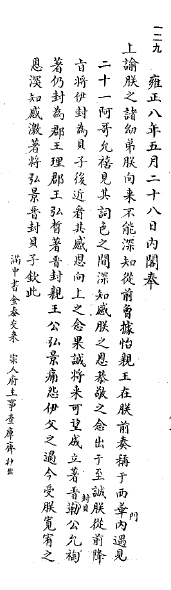 一二九
雍正八年五月二十八日内閣奉
上諭朕之諸幼弟朕向来不能深知從前曾據怡親王在朕前奏稱于西華門内遇見
二十一阿哥允禧見其詞色之間深知感朕之恩恭敬之念出于至誠朕從前降
旨將伊封為貝子後近看其感恩向上之念果誠將来可望成立著晋封貝勒公允祹
著仍封為郡王理郡王弘晳著晋封親王公弘景痛怨伊父之過今受朕寬宥之
恩深知感激著將弘景晋封貝子欽此
滿中書金泰交来 宗人府主事查庫齊抄出